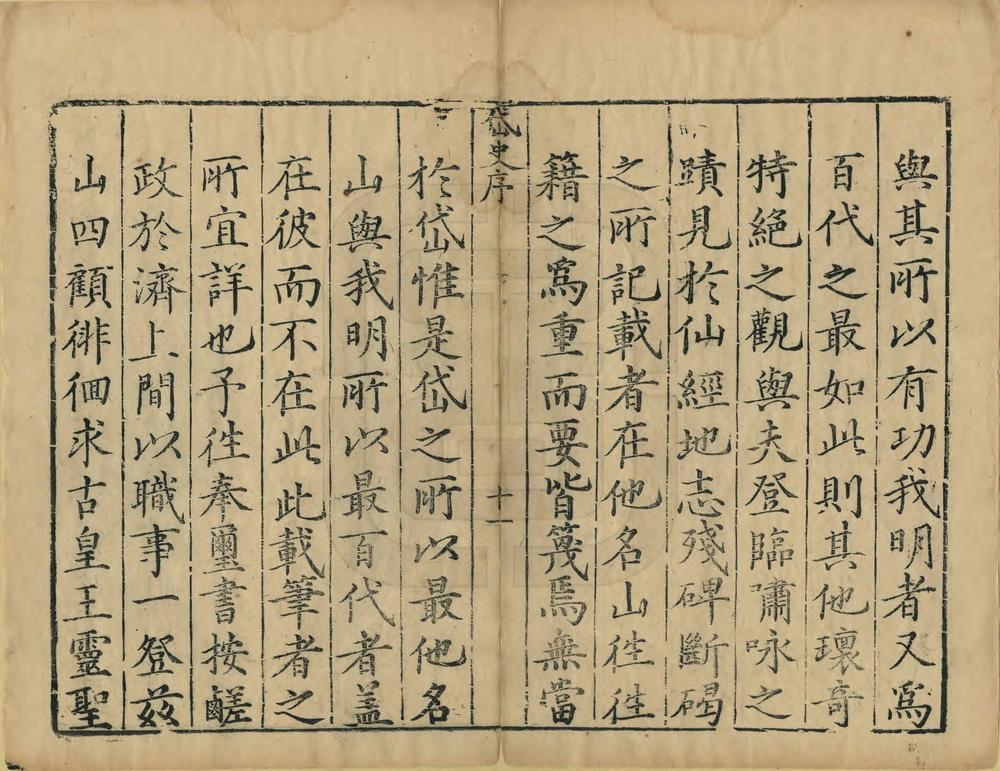 與其所以有功我明者又爲
百代之最如此則其他瓌奇
特絕之觀與夫登臨嘯咏之
蹟見於仙經地志殘碑斷碣
之所記載者在他名山徃徃
籍之爲重而要皆篾焉無當
岱史序
十一
於岱惟是岱之所以最他名
山與我明所以最百代者盖
在彼而不在此此載筆者之
所宜詳也予徃奉璽書按鹺
政於濟上間以職事一登兹
山四顧徘徊求古皇王靈聖